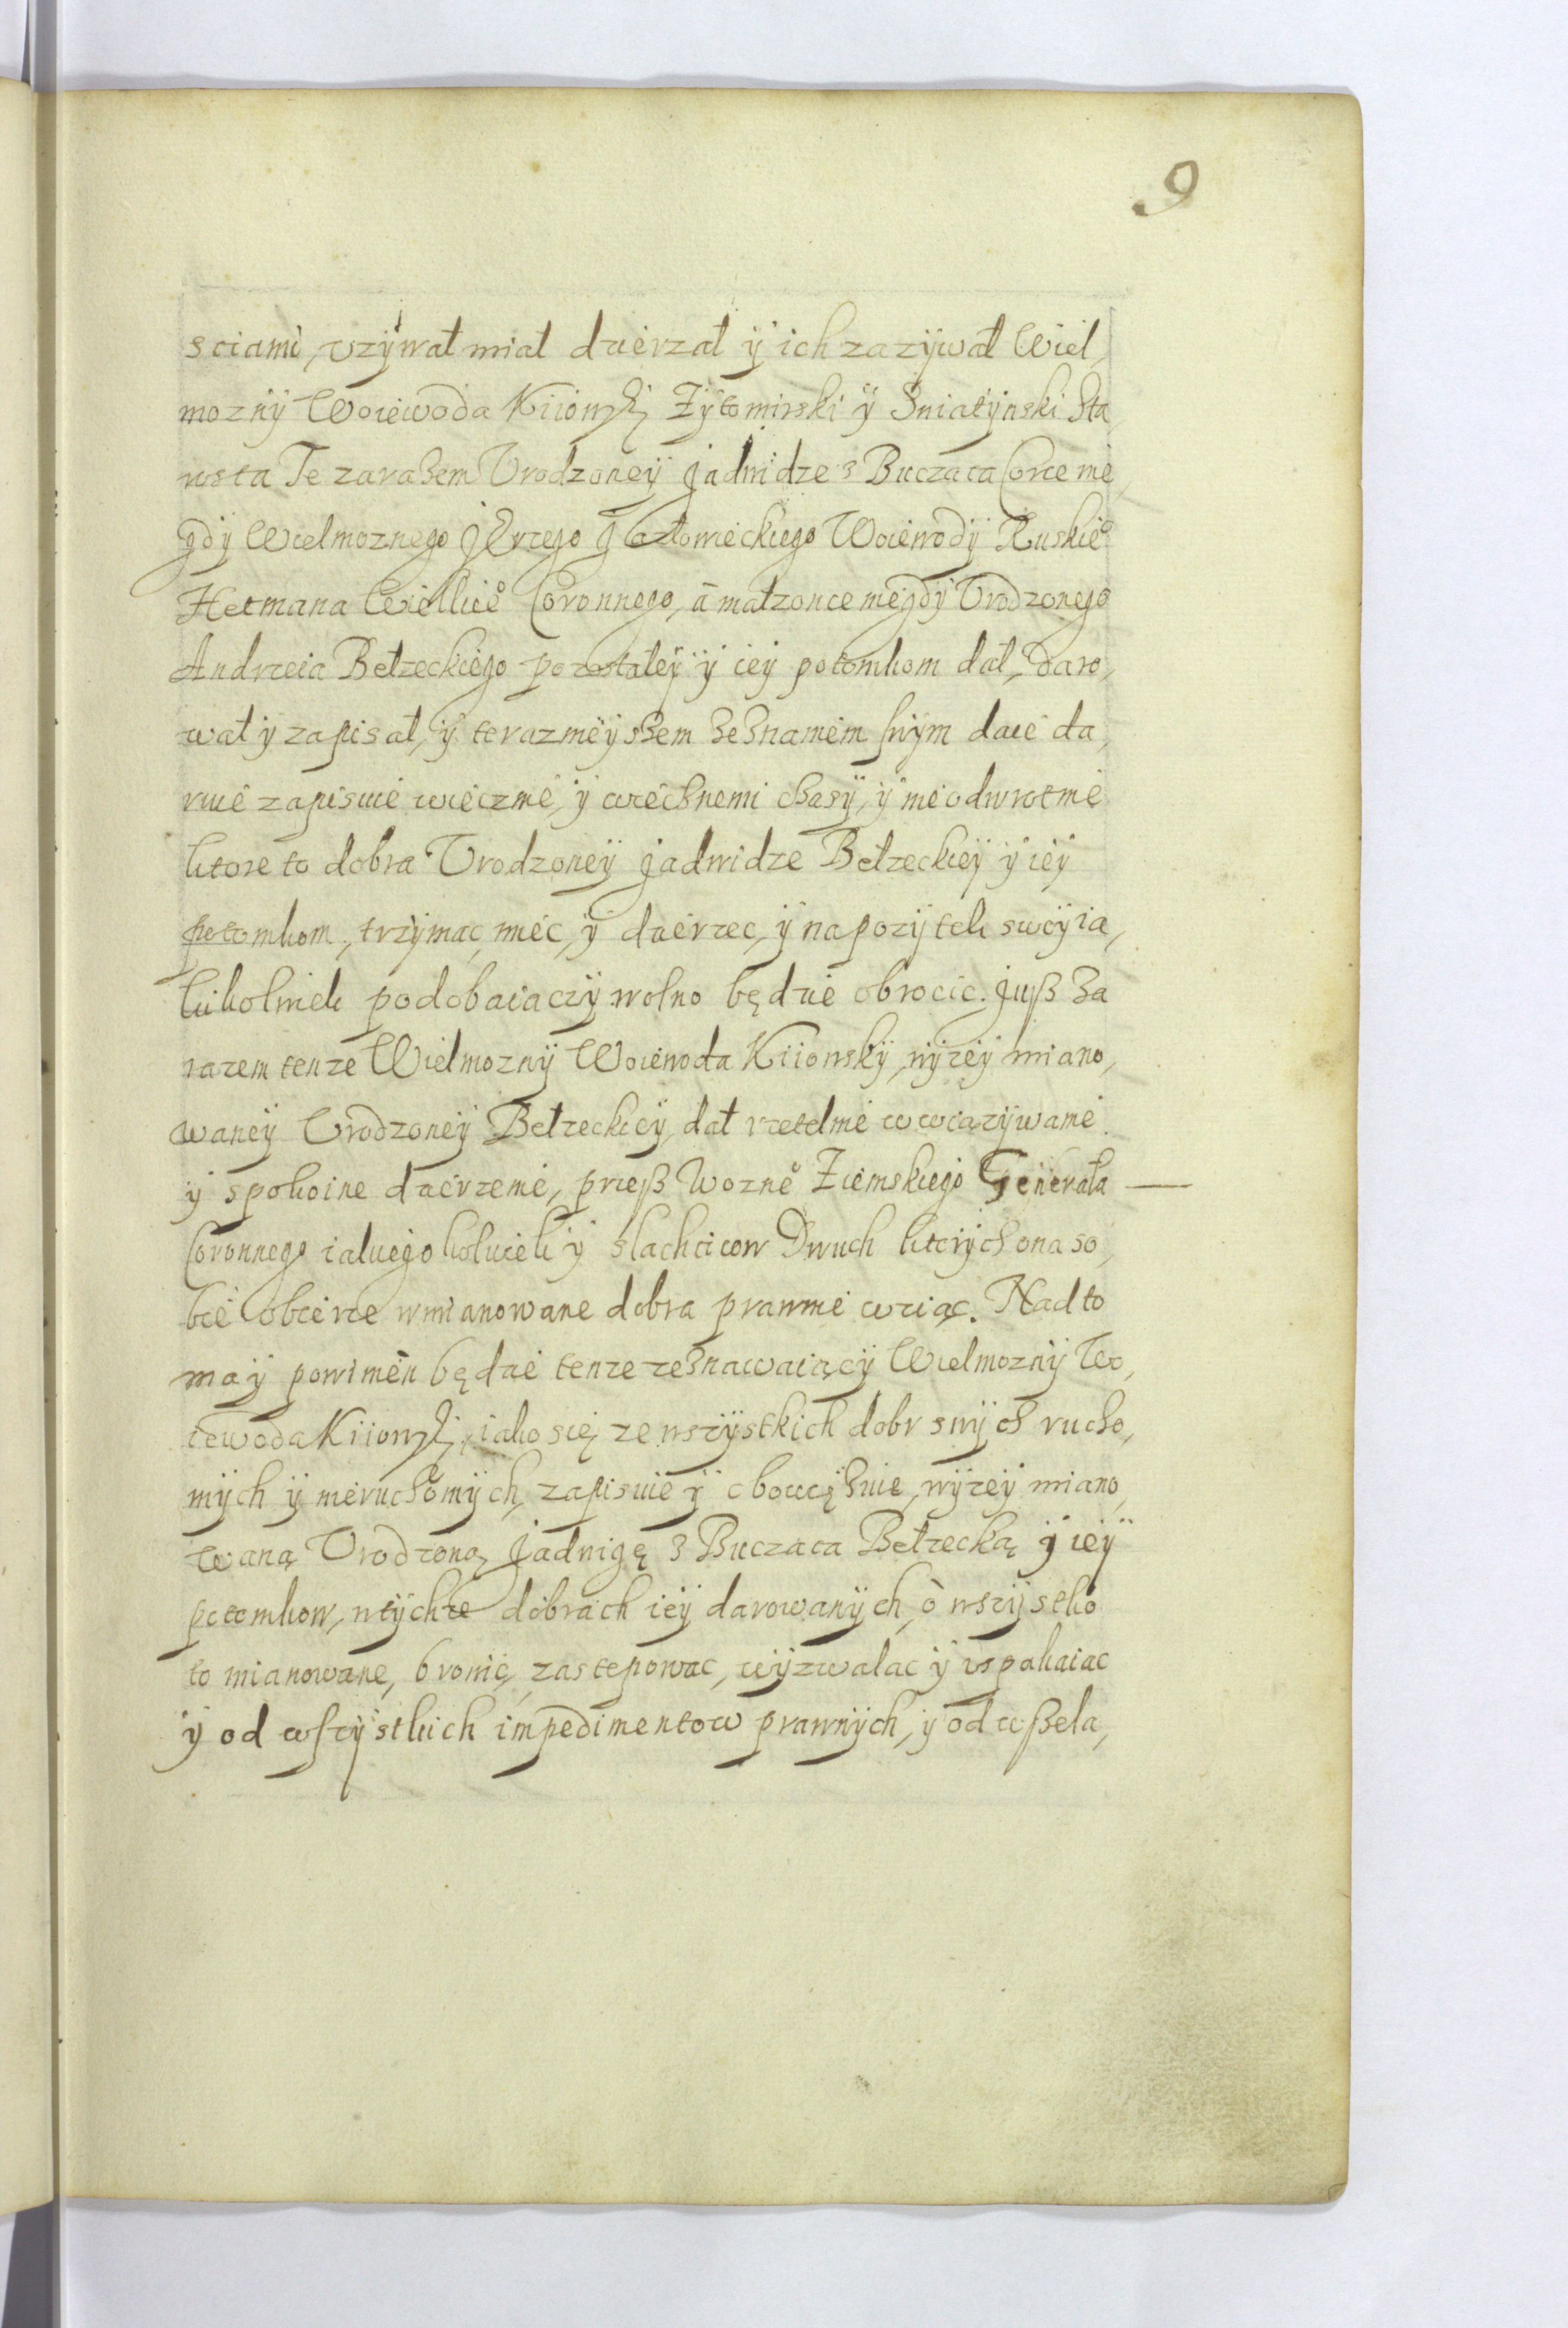 9
sciami, vzÿwał miał dzierzał ÿ ich zazÿwał Wiel,
moznÿ Woiewoda Kiiowski Zÿtomirski ÿ Sniatÿnski Sta,
rosta Te zarazem Vrodzoneÿ Jadwidze z Buczaca Corce nie,
gdÿ Wielmoznego JErzego Jazłowieckiego Woiewodÿ Ruskieº
Hetmana Wielkieº Coronnego, á małzonce niegdÿ Vrodzonego
Andrzeia Bełzeckiego pozostałeÿ ÿ ieÿ potomkom dał, Daro,
wał ÿ zapisał, ÿ teraznieÿszem zeznaniem swÿm daie da,
ruie zapisuie wiecznie, ÿ wiecznemi czasÿ, ÿ nieodwrotnie
ktore to dobra Vrodzoneÿ Jadwidze Bełzeckieÿ ÿ ieÿ
potomkom, trzÿmac, miec, ÿ dzierzec, ÿ na pozÿtek swoÿ ia,
kikolwiek podobaiaczÿ wolno będzie obrocic. Juß Za
razem tenze Wielmoznÿ Woiewoda Kiiowskÿ, wÿzeÿ miano,
waneÿ Vrodzoneÿ Bełzeckieÿ, dał rzetelnie wwiązÿwanie
ÿ spokoine dzierzenie, przeß Wozneº Ziemskiego Generała
Coronnego iakiegokolwiek ÿ slachcicow Dwuch ktorÿch ona so,
bie obierze wmianowane dobra prawnie wziąc. Nad to
ma ÿ powinien będzie tenze zeznawaiącÿ Wielmoznÿ Wo,
iewoda Kiiowski, iako się ze wszÿstkich dobr swÿch rucho,
mÿch ÿ nieruchomÿch, zapisuie ÿ obowięzuie, wÿzeÿ miano,
waną Vrodzoną Jadwigę z Buczaca Bełzecką ÿ ieÿ
potomkow, wtÿchze dobrach ieÿ darowanÿch, ò wszÿstko
to mianowane, bronic, zastepowac, wÿzwalac ÿ vspakaiac
ÿ od wszÿstkich impedimentow prawnÿch, ÿ od wßela,